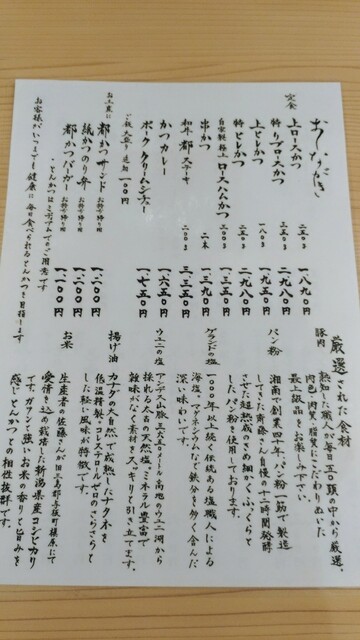 おしながき
定食
上ロースかつ 二三〇g 一、八九〇円
特リブロースかつ 二五〇g 二、九八〇円
上ヒレかつ 一八〇g 一、九五〇円
特ヒレかつ 二、九八〇円
自家製極上ロースハムかつ 二〇〇g
串かつ 二本 一、三九〇円
和牛都ステーキ 二〇〇g 三、三五〇円
かつカレー 一、六五〇円
ポーククリームシチュー 一、七五〇円
ご飯大盛り追加 一〇〇円
お土産に
都かつサンド お持ち帰り用 一、二〇〇円
紙かつのり弁 お持ち帰り用 一、二〇〇円
都かつバーガー お持ち帰り用 一、一〇〇円
・とんかつはミディアムでのご用意です
お客様がいつまでも健康に毎日食べられるとんかつを目指します
厳選された食材
豚肉
熟知した職人が毎日五〇頭の中から厳選。
肉色・肉質・脂質にこだわりぬいた
最上級品をお楽しみ下さい。
パン粉
湘南で創業四十年、パン粉一筋で製造
してきた齊藤さん自慢の十二時間発酵
させた超熟成のきめ細かくふっくらと
したパン粉を使用しております。
ゲランドの塩
二〇〇〇年以上続く伝統ある塩職人による
海塩。マグネシウムなど鉄分を多く含んだ
深い味わいです。
ウユニの塩
アンデス山脈三七六〇メートル高地のウユニ湖から
採れる太古の天然塩。ミネラル豊富で
雑味がなく素材をスッキリと引き立てます。
揚げ油
カナダの大自然で成熟したナタネを
低温搾製。コレステロールゼロのさらさらと
した軽い風味が特徴です。
お米
生産者の佐藤さんが旧三島郡三島町榎原にて
愛情を込め栽培した新潟県産コシヒカリ
です。ガツンと強いお米の香りと旨みを
感じとんかつとの相性抜群です。